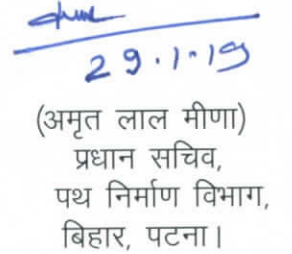 29.1.19
(अमृत लाल मीणा)
प्रधान सचिव,
पथ निर्माण विभाग,
बिहार, पटना।